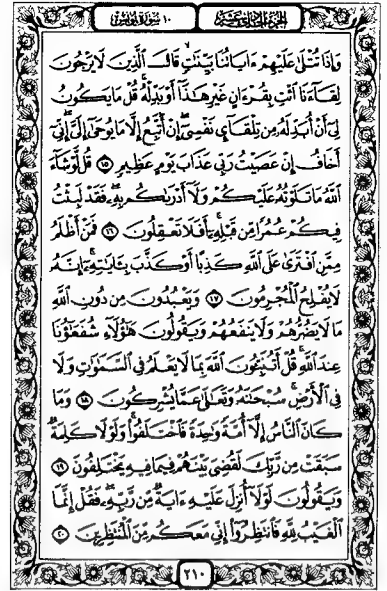 الجزء الحادي عشر
١٠ سورة يونس
وَإِذَا تُتْلَىٰ عَلَيْهِمْ ءَايَاتُنَا بَيِّنَٰتٍ قَالَ ٱلَّذِينَ لَا يَرْجُونَ
لِقَآءَنَا ٱئْتِ بِقُرْءَانٍ غَيْرِ هَٰذَآ أَوْ بَدِّلْهُ ۚ قُلْ مَا يَكُونُ
لِىٓ أَنْ أُبَدِّلَهُۥ مِن تِلْقَآئِ نَفْسِىٓ ۖ إِنْ أَتَّبِعُ إِلَّا مَا يُوحَىٰٓ إِلَىَّ ۖ إِنِّىٓ
أَخَافُ إِنْ عَصَيْتُ رَبِّى عَذَابَ يَوْمٍ عَظِيمٍ ١٥ قُل لَّوْ شَآءَ
ٱللَّهُ مَا تَلَوْتُهُۥ عَلَيْكُمْ وَلَآ أَدْرَىٰكُم بِهِۦ ۖ فَقَدْ لَبِثْتُ
فِيكُمْ عُمُرًا مِّن قَبْلِهِۦٓ ۚ أَفَلَا تَعْقِلُونَ ١٦ فَمَنْ أَظْلَمُ
مِمَّنِ ٱفْتَرَىٰ عَلَى ٱللَّهِ كَذِبًا أَوْ كَذَّبَ بِـَٔايَٰتِهِۦٓ ۚ إِنَّهُۥ
لَا يُفْلِحُ ٱلْمُجْرِمُونَ ١٧ وَيَعْبُدُونَ مِن دُونِ ٱللَّهِ
مَا لَا يَضُرُّهُمْ وَلَا يَنفَعُهُمْ وَيَقُولُونَ هَٰٓؤُلَآءِ شُفَعَٰٓؤُنَا
عِندَ ٱللَّهِ ۚ قُلْ أَتُنَبِّـُٔونَ ٱللَّهَ بِمَا لَا يَعْلَمُ فِى ٱلسَّمَٰوَٰتِ وَلَا
فِى ٱلْأَرْضِ ۚ سُبْحَٰنَهُۥ وَتَعَٰلَىٰ عَمَّا يُشْرِكُونَ ١٨ وَمَا
كَانَ ٱلنَّاسُ إِلَّآ أُمَّةً وَٰحِدَةً فَٱخْتَلَفُوا۟ ۚ وَلَوْلَا كَلِمَةٌ
سَبَقَتْ مِن رَّبِّكَ لَقُضِىَ بَيْنَهُمْ فِيمَا فِيهِ يَخْتَلِفُونَ ١٩
وَيَقُولُونَ لَوْلَآ أُنزِلَ عَلَيْهِ ءَايَةٌ مِّن رَّبِّهِۦ ۖ فَقُلْ إِنَّمَا
ٱلْغَيْبُ لِلَّهِ فَٱنتَظِرُوٓا۟ إِنِّى مَعَكُم مِّنَ ٱلْمُنتَظِرِينَ ٢٠
٢١٠